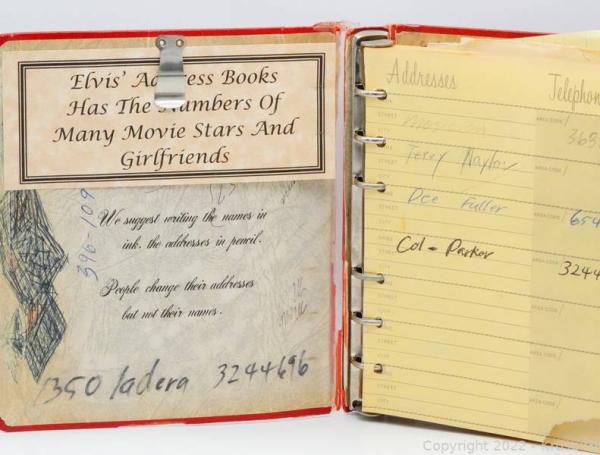 Elvis' Address Books
Has The Numbers Of
Many Movie Stars And
Girlfriends
396-109
We suggest writing the names in
ink, the addresses in pencil.
People change their addresses
but not their names.
1350 ladera 3244696
Addresses Telephon
STREET AREA CODE /
363
Terry Naylor
Dee Fuller
654
Col. Parker
3244
Copyright 2022 -